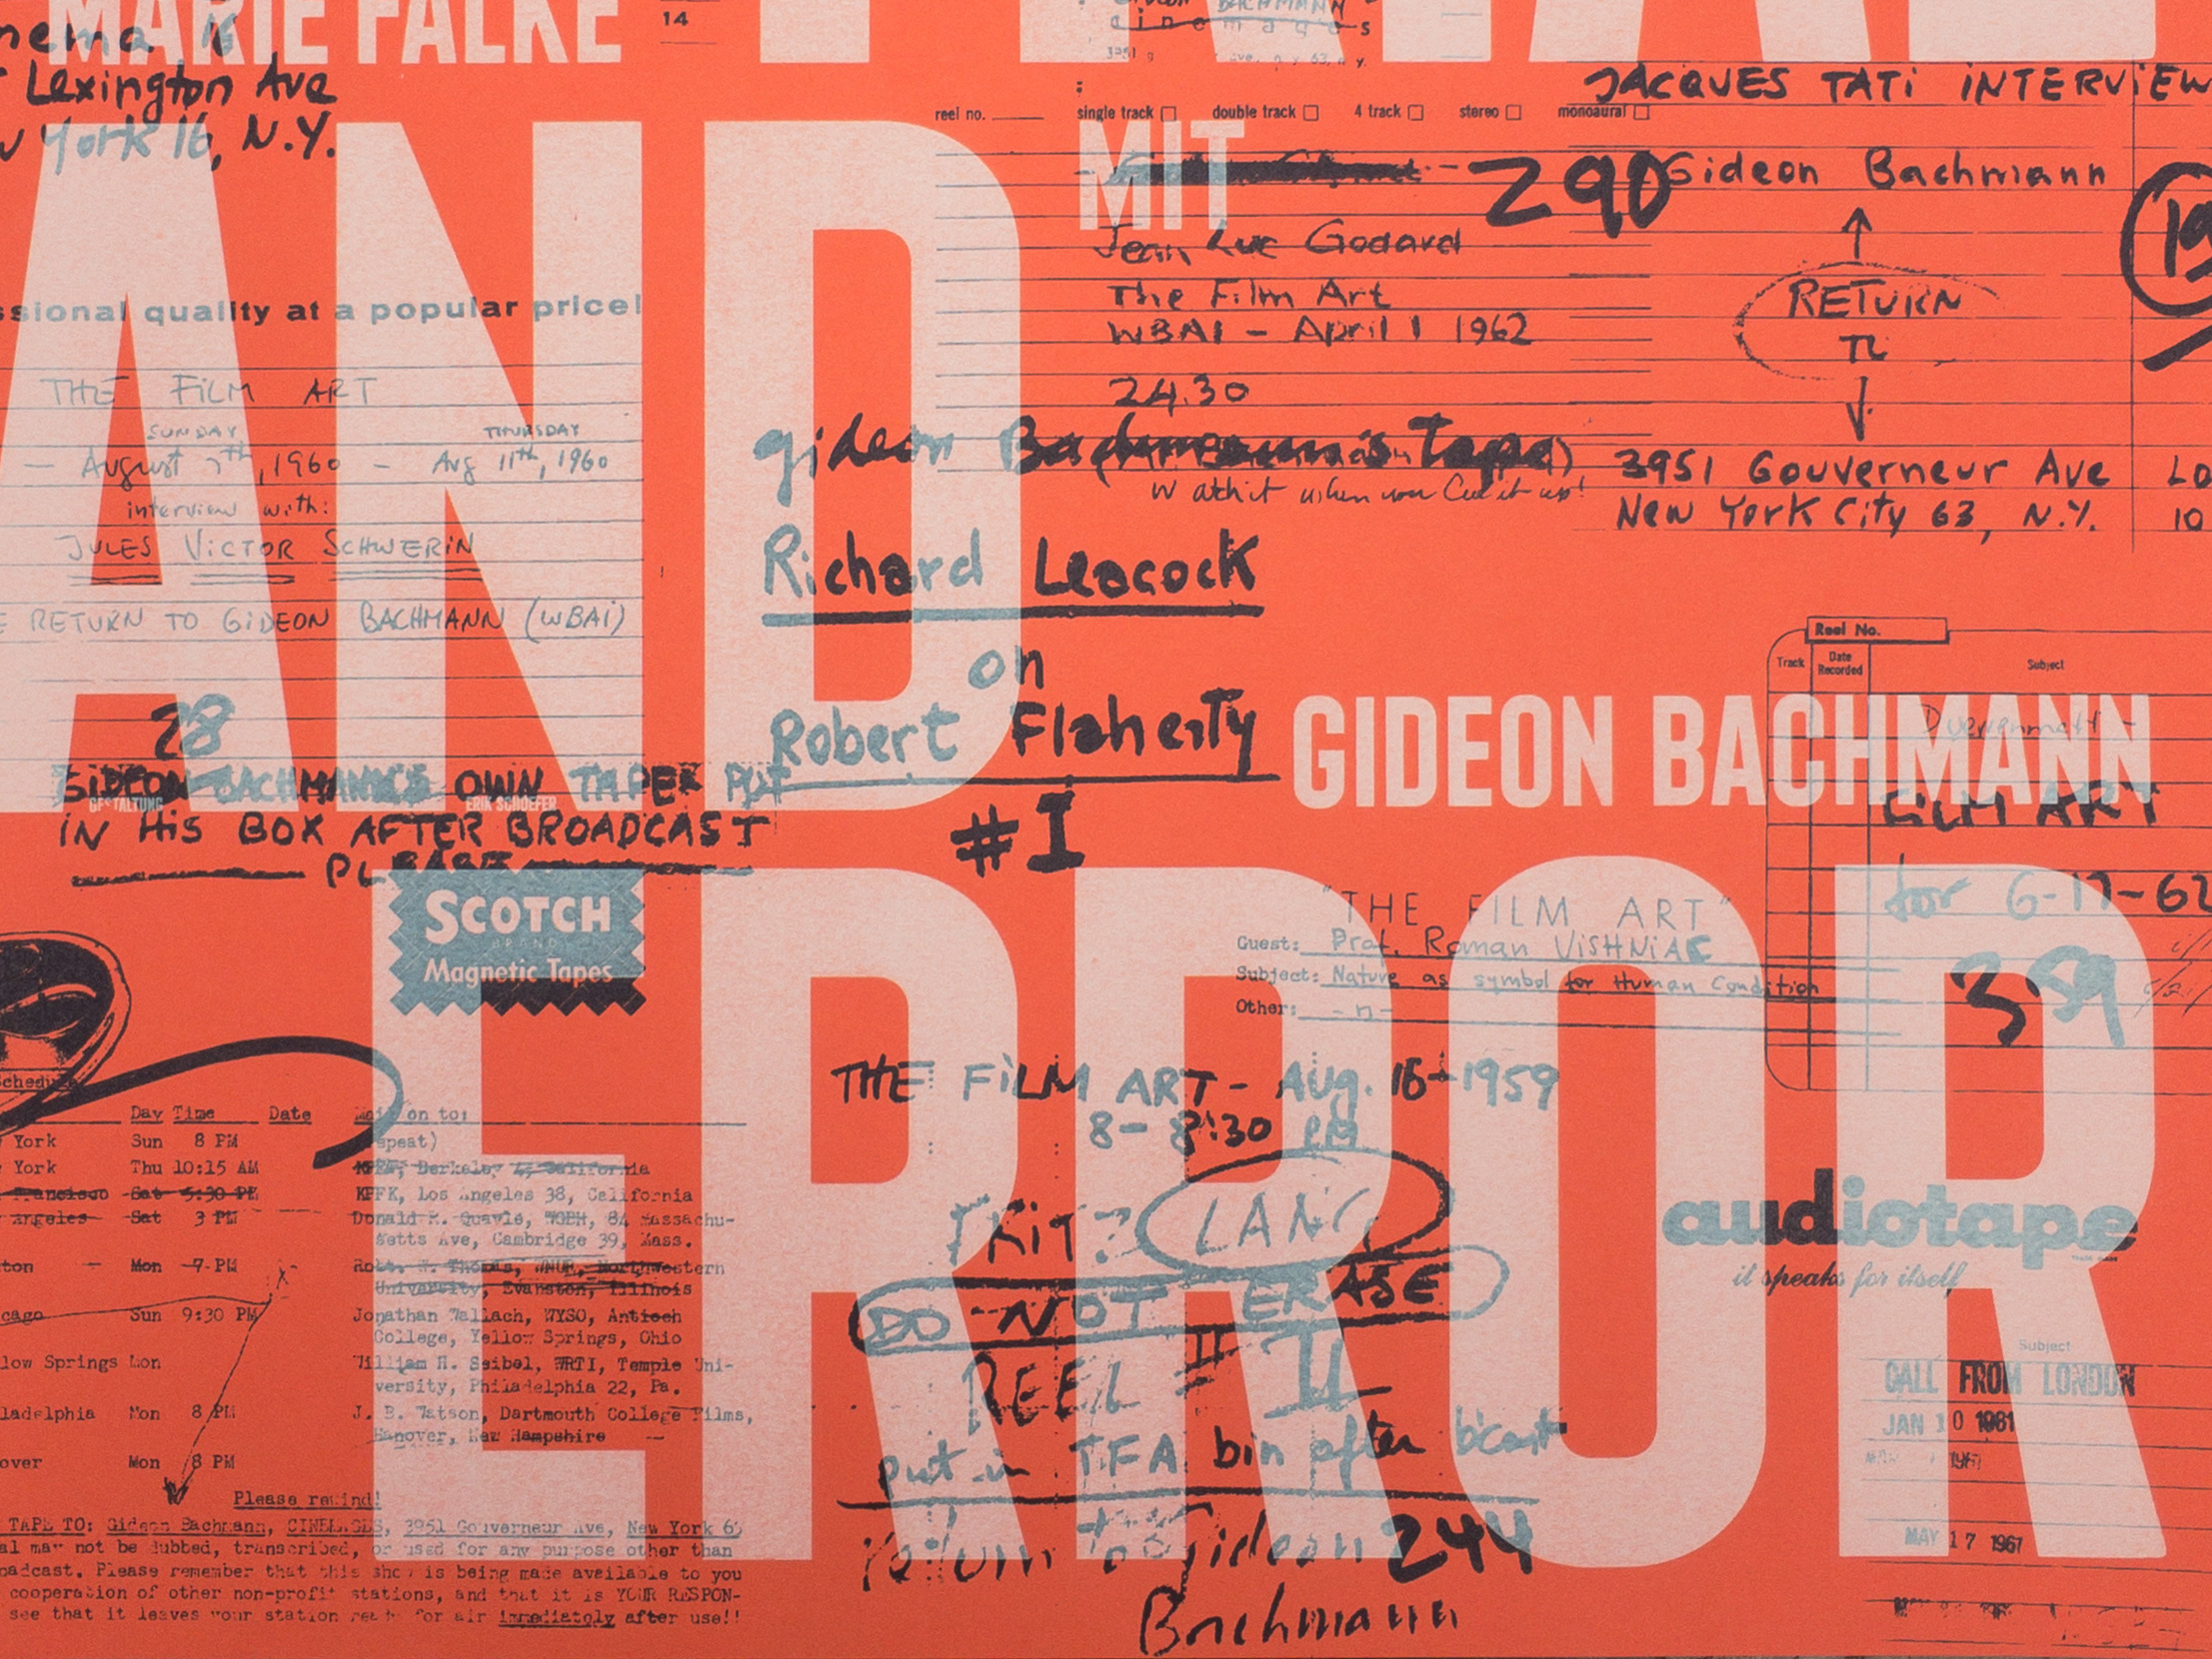 MARIE FALKE
14
Lexington Ave
York 16, N.Y.
cinemages
reel no.
single track
double track
4 track
stereo
monoaural
JACQUES TATi iNTERVIEW
AND
MIT
290
Gideon Bachmann
RETURN
TL
3951 Gouverneur Ave
New York City 63, N.Y.
Jean Luc Godard
The Film Art
WBAI - April 1 1962
24.30
quality at a popular price!
THE FiLM ART
SUNDAY
THURSDAY
- August 7th, 1960 - Aug 11th, 1960
interview with:
JULES VICTOR SCHWERIN
RETURN TO GiDEON BACHMANN (WBAi)
gideon Bachmann's Tape
Richard Leacock
on
Robert Flaherty
#I
28
GIDEON BACHMANN'S OWN TAPE PUT
IN HIS BOX AFTER BROADCAST
PLEASE
GESTALTUNG
ERIK SCHOEFER
GIDEON BACHMANN
Reel No.
Track
Date Recorded
Subject
FILM ART
for 6-17-62
359
ERROR
SCOTCH
BRAND
Magnetic Tapes
"THE FILM ART"
Guest: Prof. Roman ViSHNiAC
Subject: Nature as symbol for Human Condition
Other: - n -
THE FiLM ART - Aug. 16 - 1959
8 - 8:30 PM
FRiTZ LANG
DO NOT ERASE
REEL # II
put in TFA bin after b'cast
return to Gideon 244
Bachmann
audiotape
it speaks for itself
Subject
CALL FROM LONDON
JAN 10 1961
MAY 17 1967
Day Time Date Mail on to:
York Sun 8 PM
York Thu 10:15 AM KPFA, Berkeley 4, California
Francisco Sat 5:30 PM KPFK, Los Angeles 38, California
Angeles Sat 3 PM Donald R. Quayle, WGBH, 84 Massachu-
setts Ave, Cambridge 39, Mass.
Mon 7 PM Robt. W. Thomas, WNUR, Northwestern
University, Evanston, Illinois
Sun 9:30 PM Jonathan Wallach, WYSO, Antioch
College, Yellow Springs, Ohio
Springs Mon William H. Seibel, WRTI, Temple Uni-
versity, Philadelphia 22, Pa.
Mon 8 PM J. B. Watson, Dartmouth College Films,
Hanover, New Hampshire
Mon 8 PM
Please rewind!
TAPE TO: Gideon Bachmann, CINEMAGES, 3951 Gouverneur Ave, New York 63
may not be dubbed, transcribed, or used for any purpose other than
Please remember that this show is being made available to you
cooperation of other non-profit stations, and that it is YOUR RESPON-
see that it leaves your station ready for air immediately after use!!